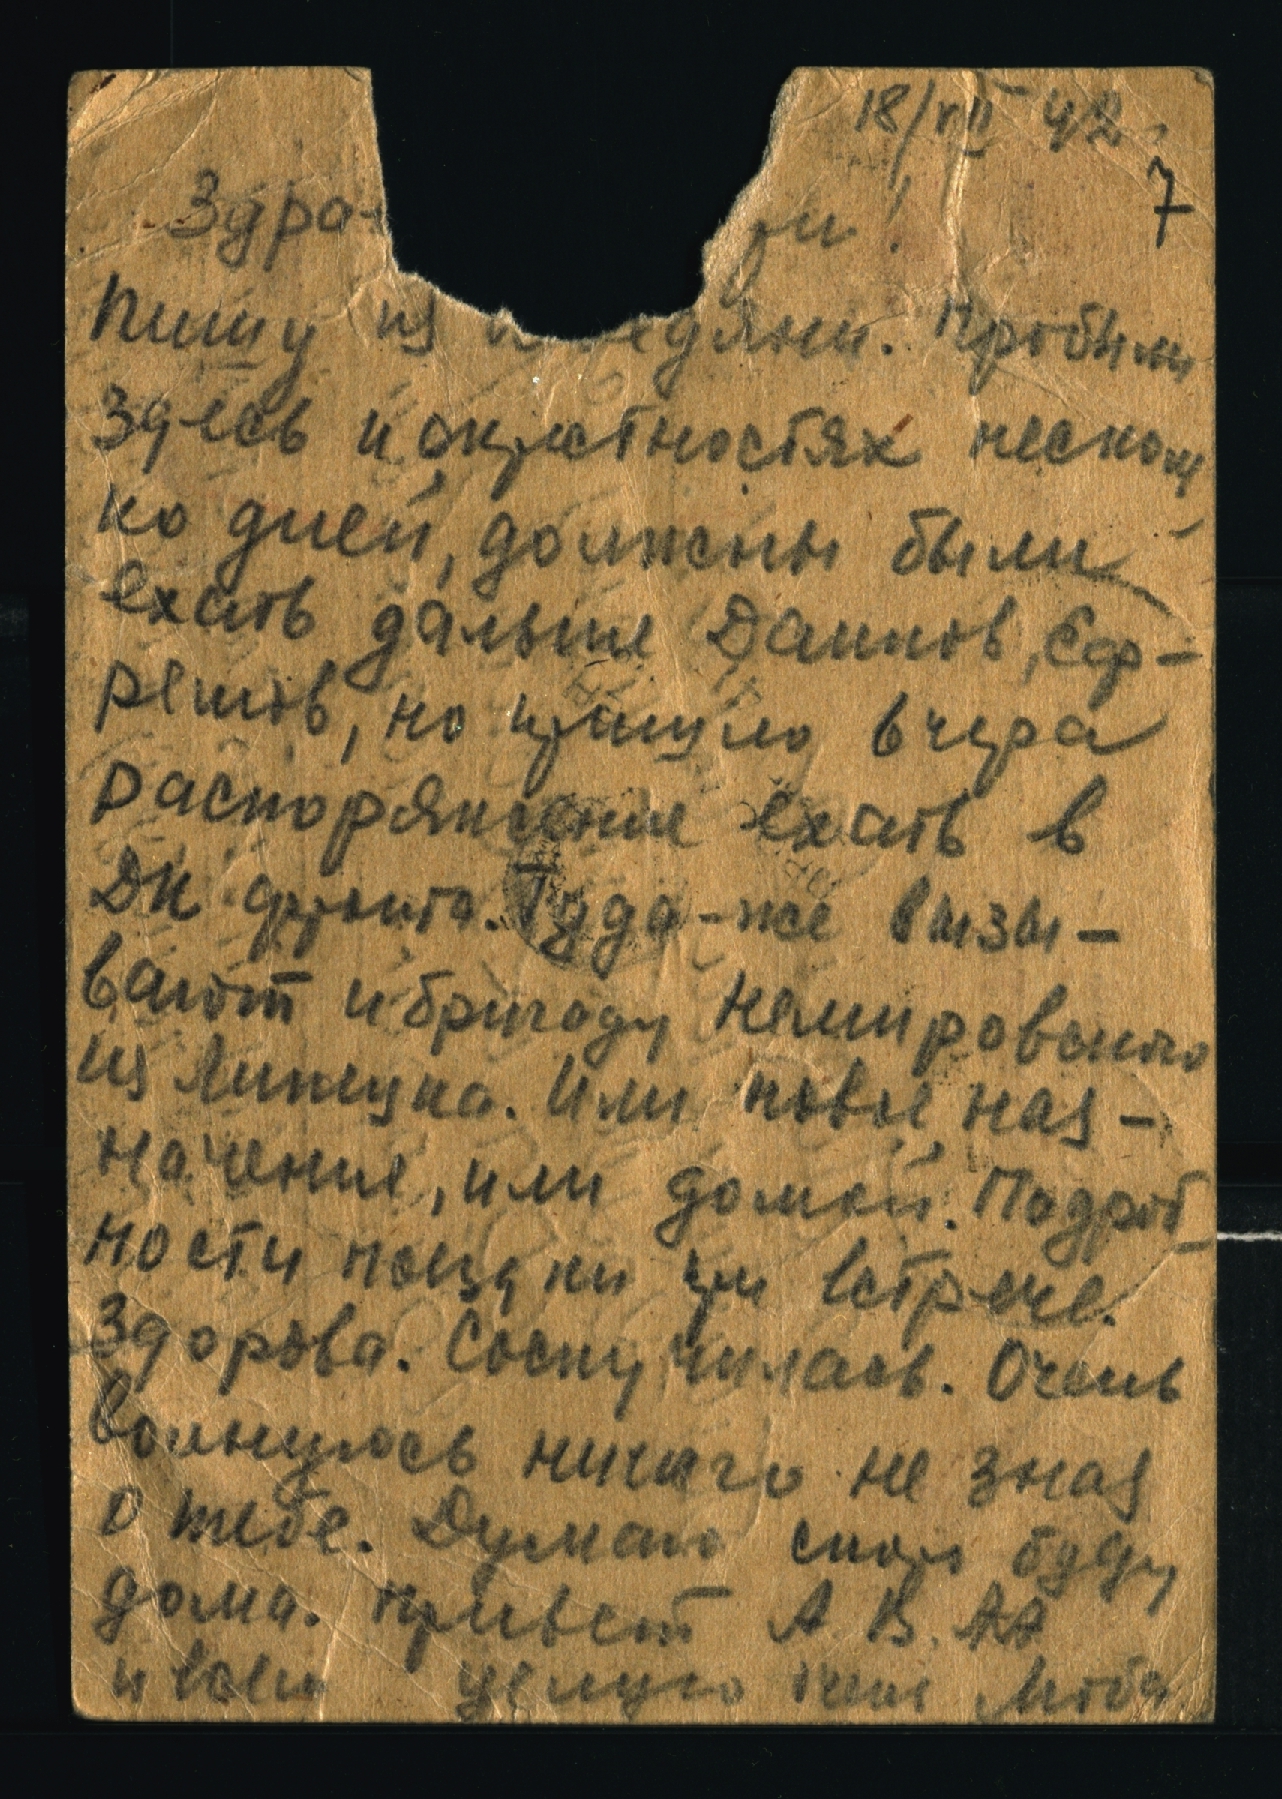 18/VII 42
7
Здра ри!
Пишу из едяни. Пробыли
здесь и окрестностях несколь
ко дней, должны были
ехать дальше Данков, Еф-
ремов, но пришло вчера
распоряжение ехать в
ДК фронта. Туда-же вызы-
вают и бригаду Немировского
из Липецка. Или новое наз-
начение, или домой. Подроб
ности поездки при встрече.
Здорова. Соскучилась. Очень
волнуюсь ничего не зная
о тебе. Думаю скоро буду
дома. Привет А. В. АА
и всем целую